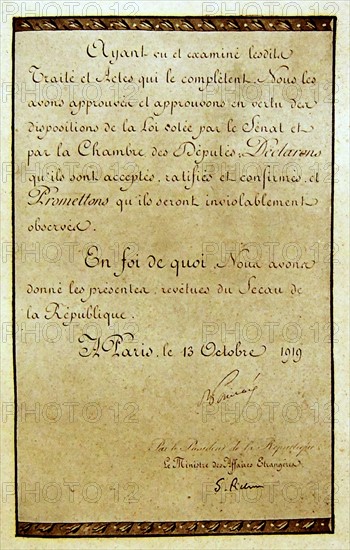 PHOTO12 PHOTO12 PHOTO12
Ayant vu et examiné lesdits
Traité et Actes qui le complètent. Nous les
avons approuvés et approuvons en vertu des
dispositions de la Loi votée par le Sénat et
par la Chambre des Députés, Déclarons
qu'ils sont acceptés, ratifiés et confirmés, et
Promettons qu'ils seront inviolablement
observés.
En foi de quoi, Nous avons
donné les présentes, revêtues du Sceau de
la République.
A Paris, le 13 Octobre 1919
Par le Président de la République
Le Ministre des Affaires Etrangères
S. Pichon